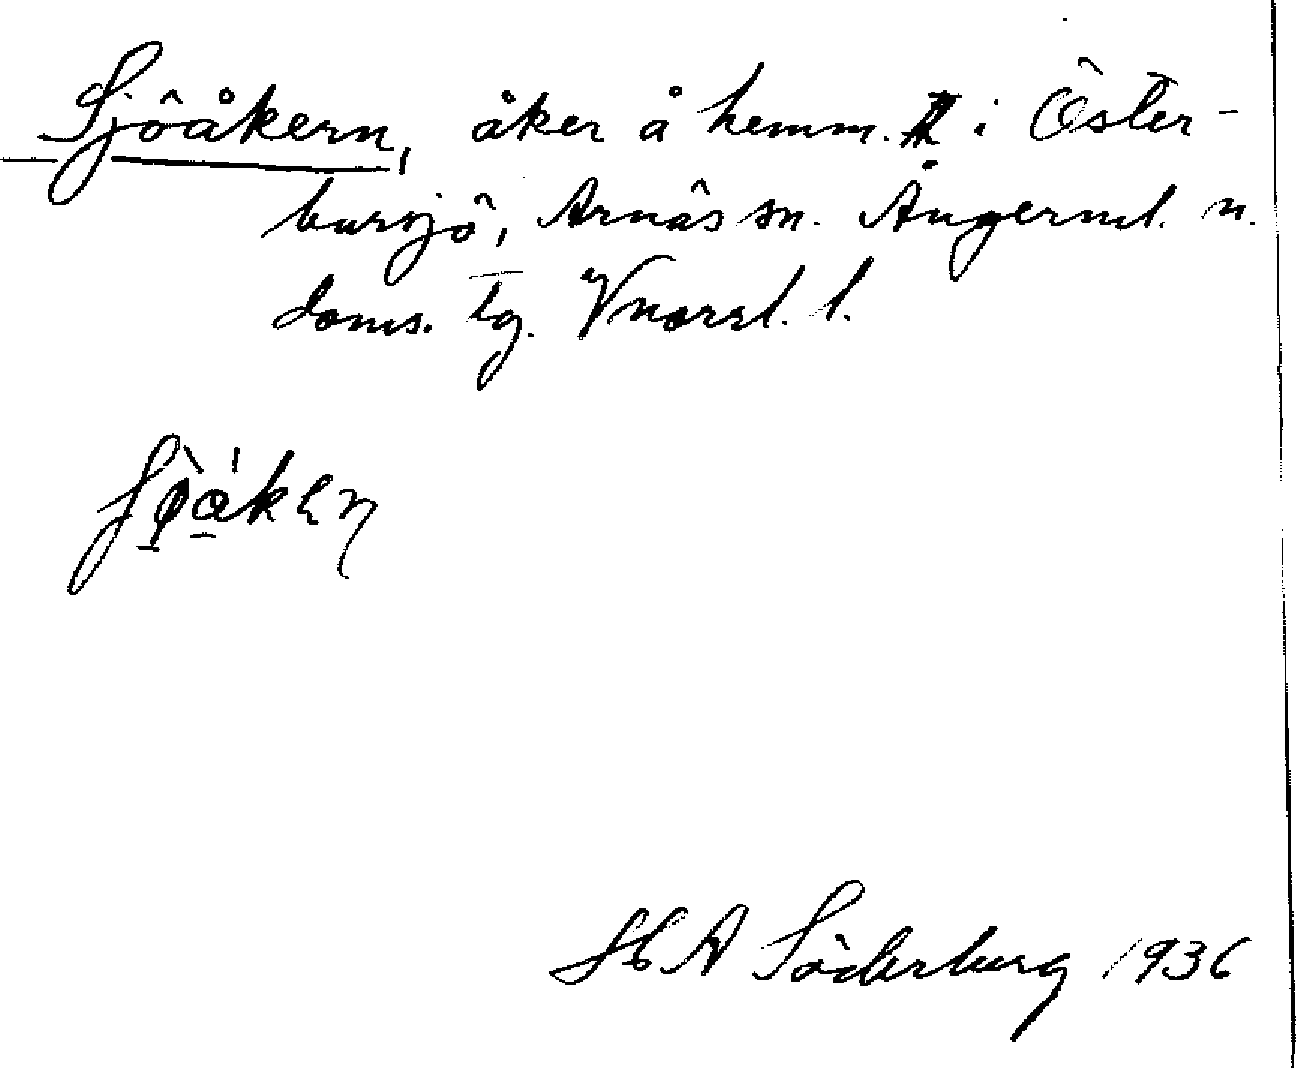 Sjöåkern, åker å hemm. A i Öster-
bursjö, Arnäs sn. Ångerml. n.
doms. lg. Vnorrl. l.
H A Söderberg 1936